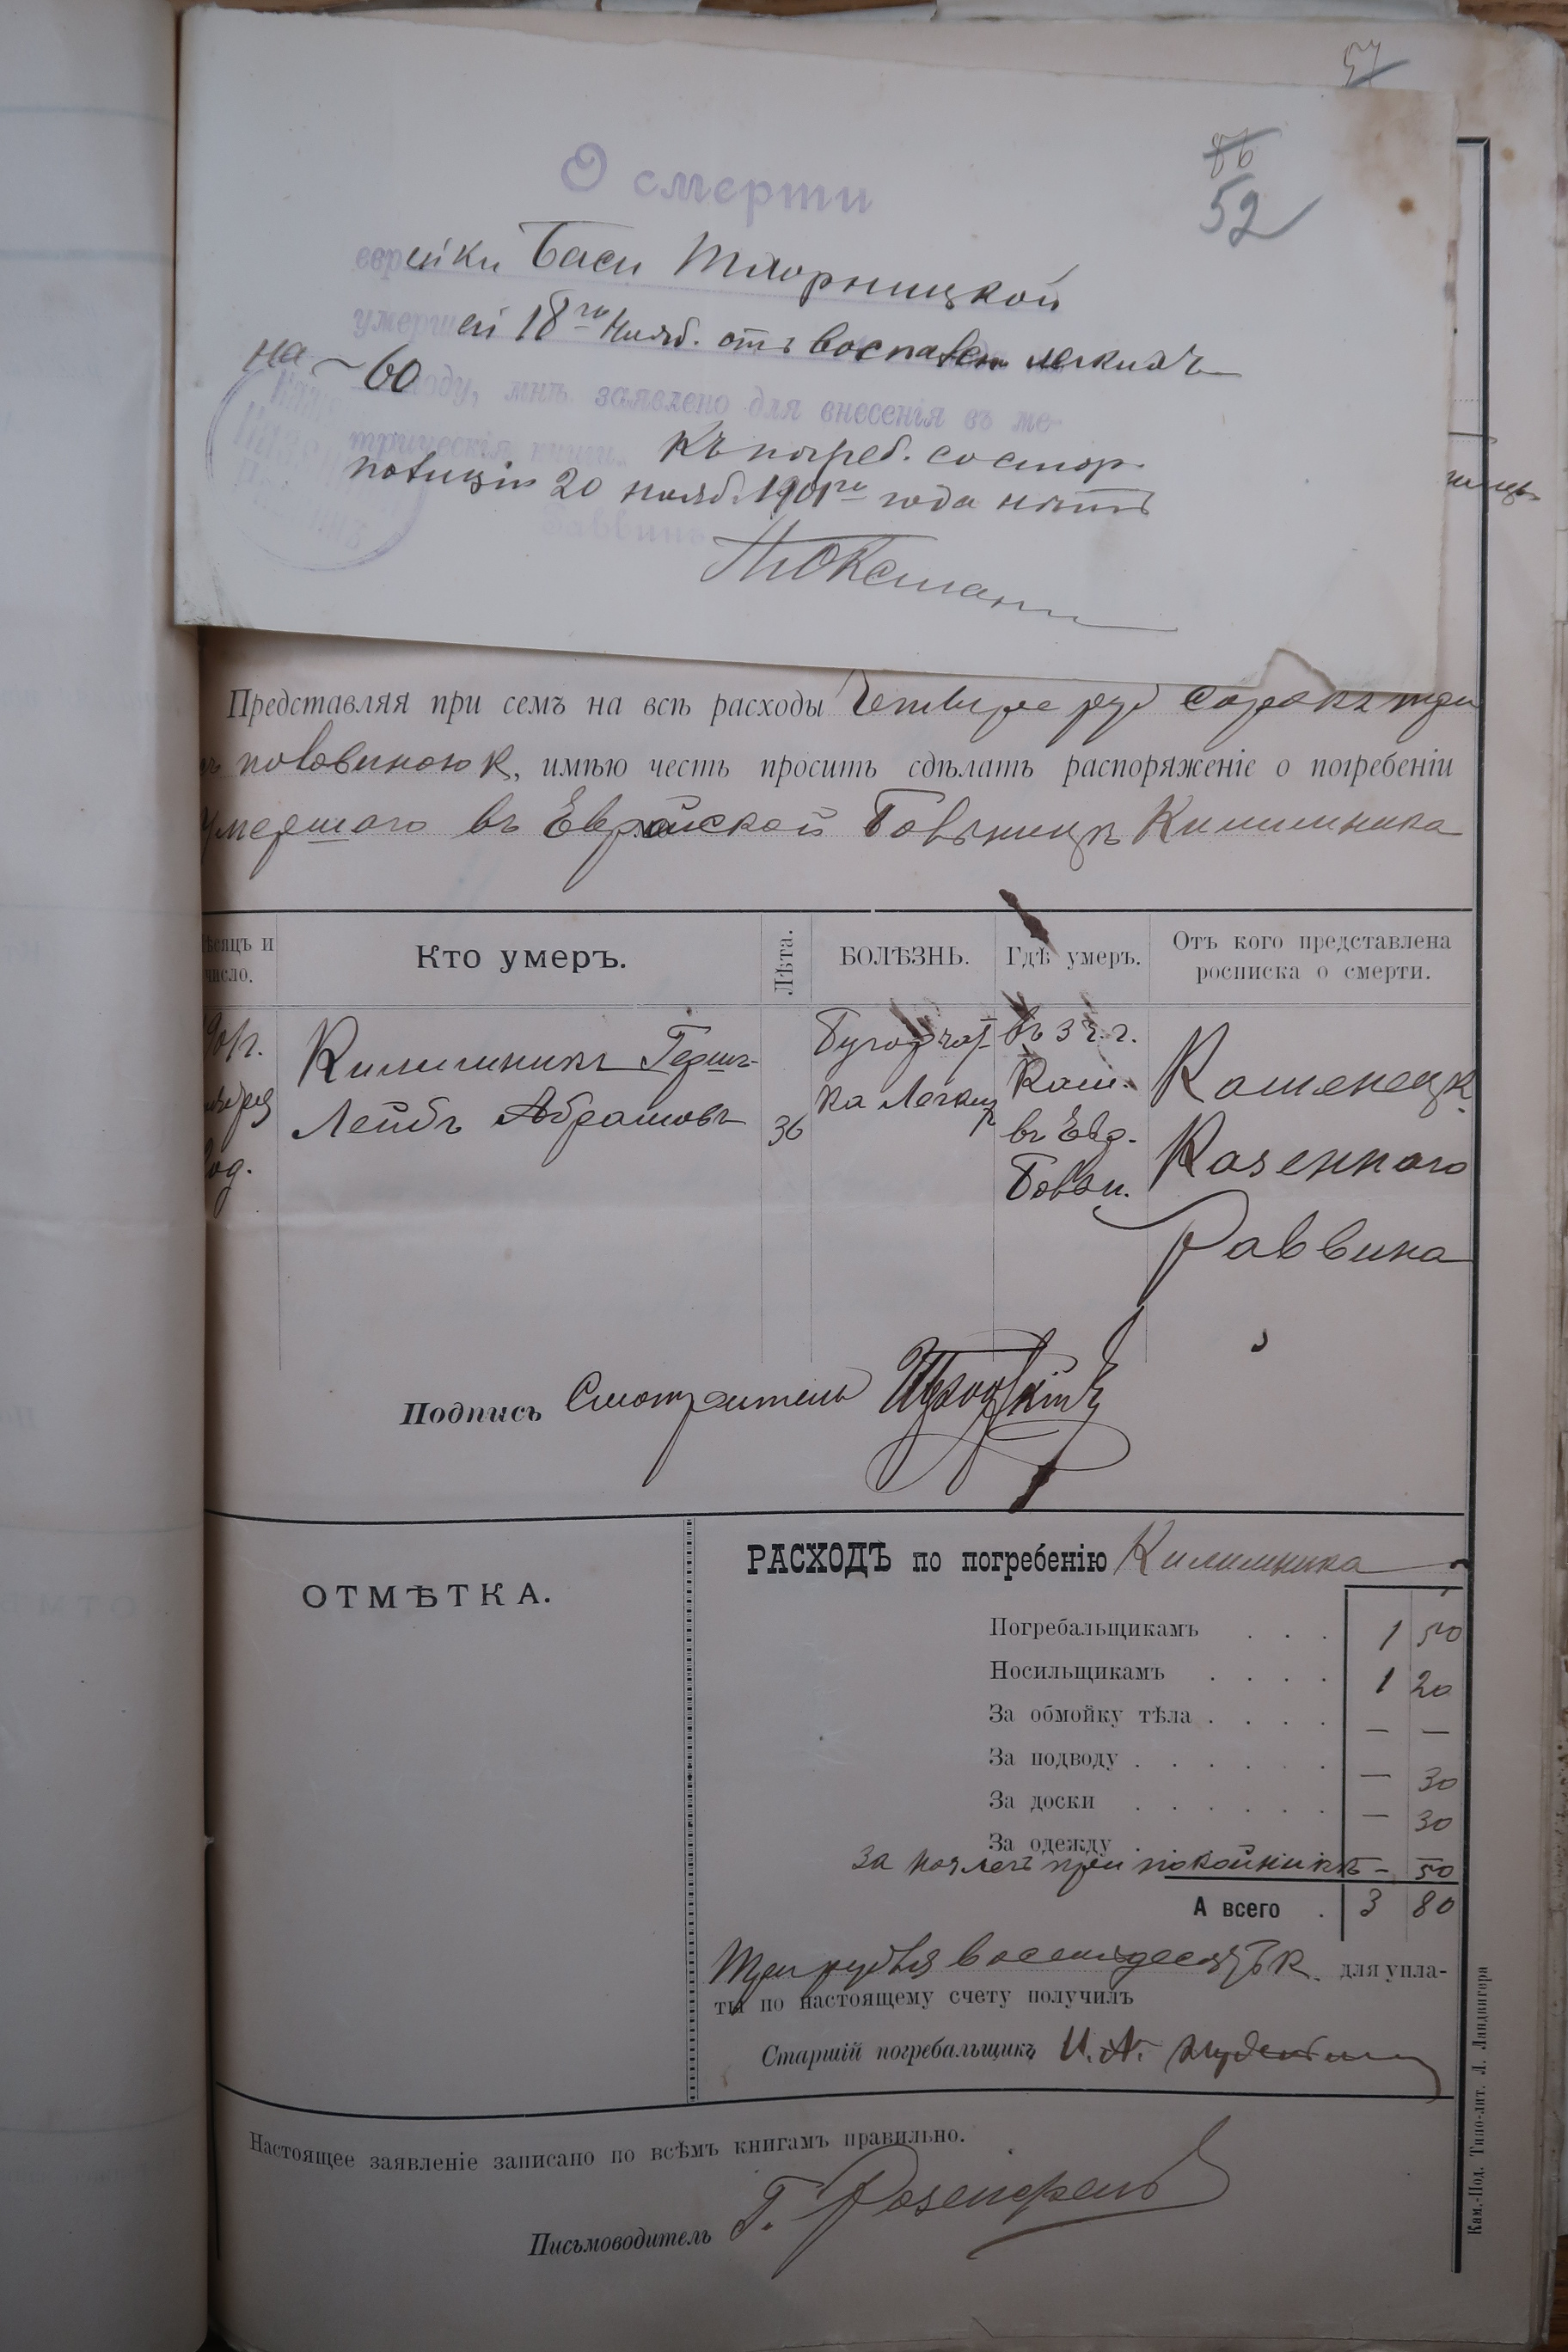 57
86
52
О смерти
еврейки Баси
умершей 18го Нояб. отъ воспален легкихъ
на 60 году, мнѣ заявлено для внесенія въ ме-
трическія книги. Къ погреб. со стор.
полиціи 20 нояб. 1901го года нѣтъ
Раввинъ
Представляя при семъ на всѣ расходы Четыре руб сорокъ три
съ половиною к, имѣю честь просить сдѣлать распоряженіе о погребеніи
Умершаго въ Еврейской Больницѣ Килимника
Мѣсяцъ и число.
Кто умеръ.
Лѣта.
БОЛѢЗНЬ.
Гдѣ умеръ.
Отъ кого представлена росписка о смерти.
Килимникъ Герш-
Лейбъ Абрамовъ
36
Бугорчат-
ка Легких
въ 3 ч. г.
Кам.
въ Евр.
Больн.
Каменецк.
Казеннаго
Раввина
Подпись Смотритель
ОТМѢТКА.
РАСХОДЪ по погребенію Килимника
Погребальщикамъ . . . 1 50
Носильщикамъ . . . . 1 20
За обмойку тѣла . . . . — —
За подводу . . . . . . — 30
За доски . . . . . . — 30
За одежду .
За ночлегъ при покойникѣ — 50
А всего . 3 80
Три рубля восемьдесятъ к. для упла-
ты по настоящему счету получилъ
Старшій погребальщикъ И. А.
Настоящее заявленіе записано по всѣмъ книгамъ правильно.
Письмоводитель Г. Розенфельд
Кам.-Под. Типо-лит. Л. Ландвигера